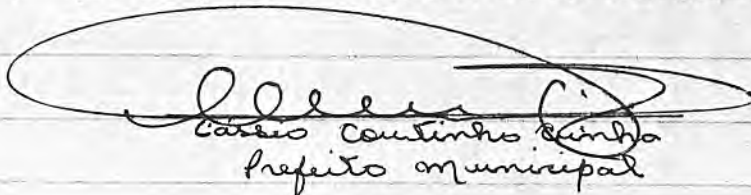 Cássio Coutinho Cunha
Prefeito municipal